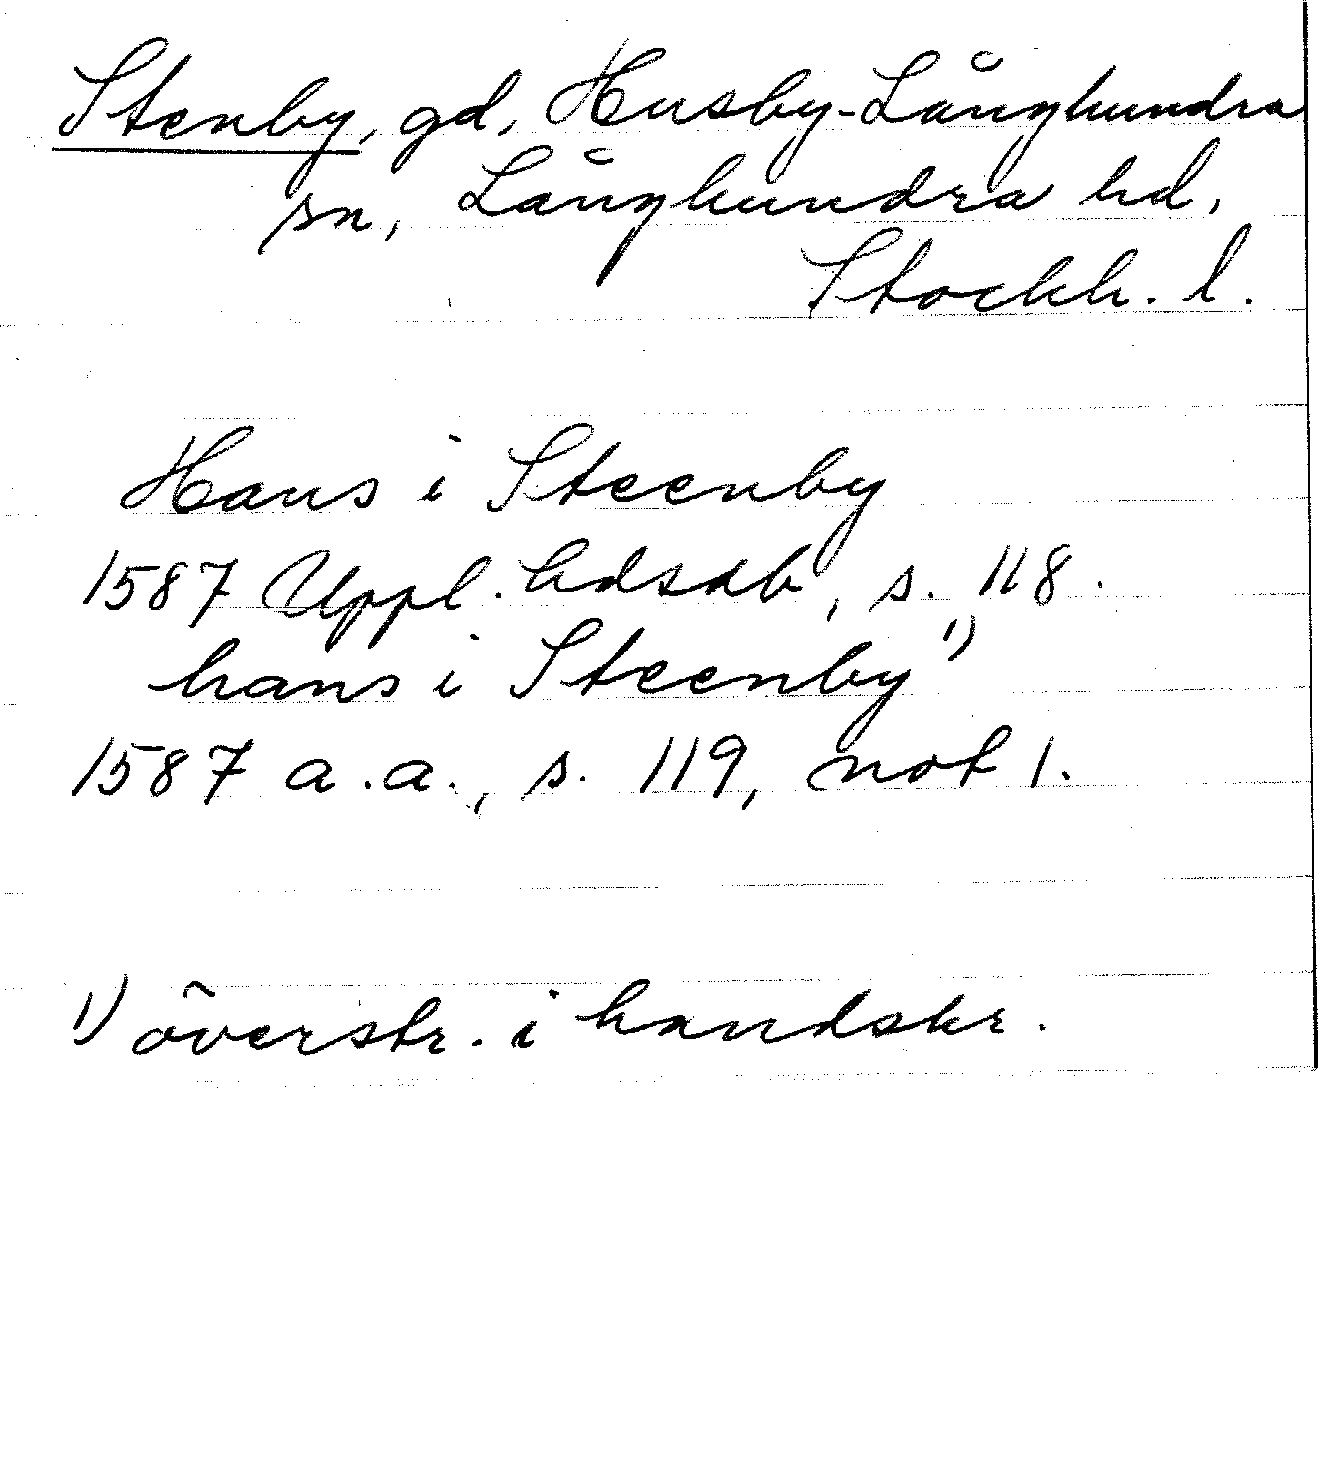 Stenby, gd, Husby-Långhundra
sn, Långhundra hd,
Stockh. l.
Hans i Steenby
1587 Uppl. hdsdb, s. 118.
hans i Steenby 1)
1587 a.a., s. 119, not 1.
1) överstr. i handskr.